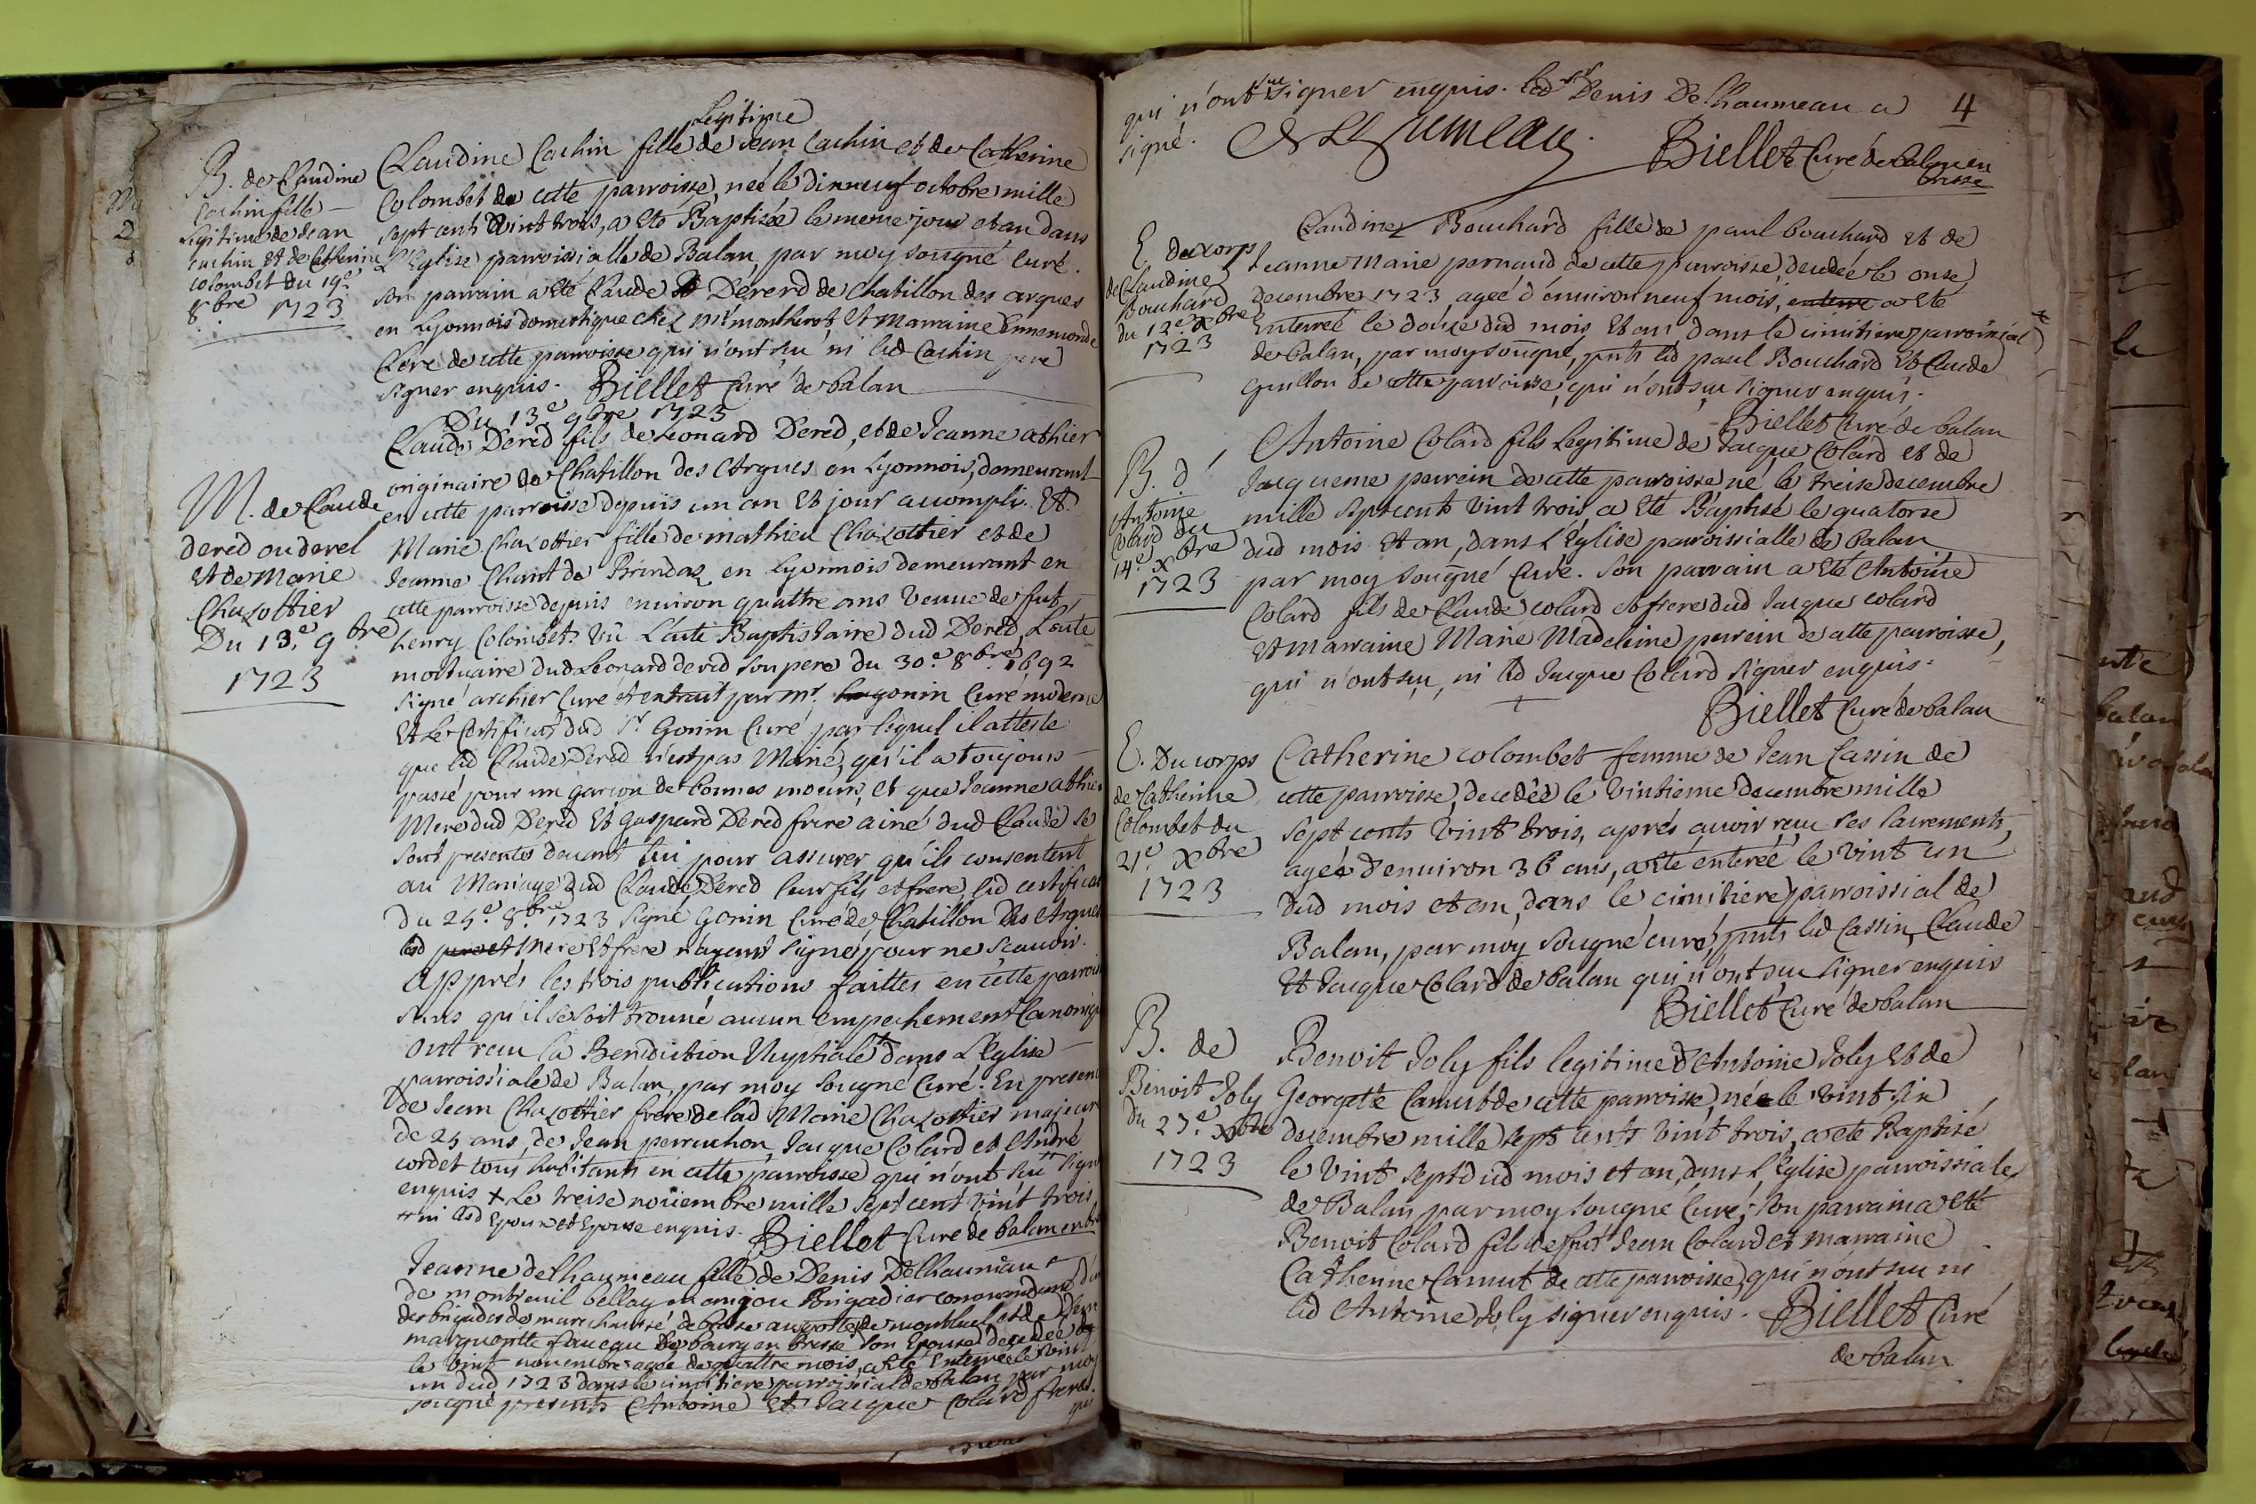 Legitime
B. de Claudine
Cachin fille
legitime de Jean
cachin et de Catherine
colombet du 19e
8bre 1723
Claudine Cachin fille de Jean Cachin et de Catherine
Colombet de cette parroisse, neé le dinneuf octobre mille
sept cents vint trois, a eté Baptisée le meme jour et an dans
L'Eglise parroissialle de Balan par moy sousigné curé.
son parrain a eté Claude Dérerd de Chatillon des arques
en Lyonnois domestique chez Mr montherot, et Marraine Ennemonde
Clere de cette parroisse qui n'ont sçu ni led Cachin pere
signer enquis. Biellet Curé de balan
Du 13e 9bre 1723
M. de Claude
dered ou derel
et de Marie
Chazottier
Du 13e 9bre
1723
Claude Dered fils de Leonard Dered, et de Jeanne athier
originaire de Chatillon des Argues en Lyonnois, demeurant
en cette parroisse depuis un an et jour accompli. Et
Marie Chazottier fille de mathieu Chazottier et de
Jeanne Chant de Brindaz en Lyonnois demeurant en
cette parroisse depuis environ quattre ans venue de fut
henry Colombet. Vû L'acte Baptistaire dud Dered, L'acte
mortuaire dud Leonard dered son pere du 30e 8bre 1692
signé archier curé et extrait par mr. gonin Curé moderne
Et le Certificat dud Sr Gonin Curé par lequel il atteste
que led Claude Dered n'est pas Marié, qu'il a toujours
passé pour un garçon de bonnes moeurs, et que Jeanne athier
Mere dud Dered et Gaspard Dered frere ainé dud Claude se
sont presentés devant lui pour assurer qu'ils consentent
au Mariage dud Claude Dered leur fils et frere, led certificat
du 25e 8bre 1723 signé Gonin Curé de Chatillon des Argues
lesd pere et Mere et frere n'ayant signé pour ne scavoir.
Apprés les trois publications faittes en cette parrois
sans qu'il se soit trouué aucun empechement Canonique
ont receu la Benediction Nuptiale dans L'Eglise
parroissiale de Balan, par moy sousigné Curé. En presence
de Jean Chazottier frere de lad Marie Chazottier majeur
de 25 ans, de Jean perruchon, Jacque Colard et André
cordet tous habitants en cette parroisse qui n'ont sçu signer
enquis + Le treise novembre mille sept cent vint trois,
+ ni lesd Epoux et Epouse enquis. Biellet Curé de balan en bre
Jeanne delhaumeau fille de Denis Delhaumeau
de montreuil bellay en anjou Brigadier commendant d'une
des brigades de marechaussé de Bresse au poste de montluel et de
marguerite fauegu de bourg en bresse son Epouse, decedée
le vint novembre ageé de quattre mois, a eté Enterrée le vint
un dud 1723 dans le cimitiere parroissial de balan par moy
sousigné presents Antoine Et Jacque Colard freres.
qui
qui n'ont sçu signer enquis. led Sr Denis Delhaumeau a
signé.
4
Biellet Curé de balan en
bresse
E. du corps
de Claudine
Bouchard
du 12e Xbre
1723
Claudine Bouchard fille de paul bouchard et de
Jeanne Marie pernaud de cette parroisse, decedée le onse
Decembre 1723, ageé d'environ neuf mois, a eté
Enterreé le douse dud mois et an dans le cimitiere parroissial
de balan, par moy sousigné, pnts led paul Bouchard et Claude
Guillon de cette parroisse, qui n'ont sçu signer enquis.
Biellet Curé de balan
B. d'
Antoine
Colard du
14e Xbre
1723
Antoine Colard fils Legitime de Jacque Colard et de
Jacqueme pewrein de cette parroisse né le treise decembre
mille sept cents vint trois, a eté Baptisé le quatorse
dud mois et an, dans L'Eglise parroissialle de balan
par moy sousigné Curé. Son parrain a eté Antoine
Colard fils de Claude colard et frere dud Jacque colard
Et Marraine Marie Madeleine pewrein de cette parroisse,
qui n'ont sçu, ni led Jacque Colard signer enquis.
Biellet Curé de balan
E. Du corps
de Catherine
Colombet du
21e Xbre
1723
Catherine colombet femme de Jean Cassin de
cette parroisse, decedée le vintieme decembre mille
sept cents vint trois, aprés auoir receu ses sacrements,
ageé d'environ 36 ans, a eté enterreé le vint un
dud mois et an, dans le cimitiere parroissial de
Balan, par moy sousigné curé, pnts led Cassin, Claude
Et Jacque Colard de balan qui n'ont sçu signer enquis
Biellet Curé de balan
B. de
Benoit Joly
du 27e Xbre
1723
Benoit Joly fils legitime d'Antoine Joly et de
Georgette Camut de cette parroisse, né le vint six
decembre mille sept cents vint trois, a eté Baptisé
le vint sept dud mois et an, dans L'Eglise parroissiale
de Balan par moy sousigné Curé; son parrain a eté
Benoit Colard fils de fut Jean Colard et marraine
Catherine Camut de cette parroisse, qui n'ont sçu ni
led Antoine Joly signer enquis. Biellet Curé
de balan